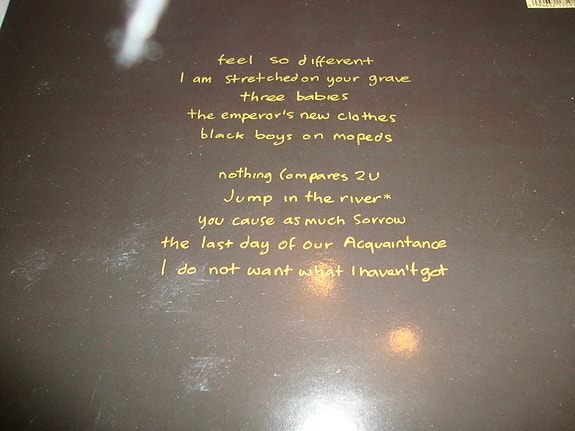 feel so different
I am stretched on your grave
three babies
the emperor's new clothes
black boys on mopeds
nothing Compares 2 U
Jump in the river*
you cause as much Sorrow
the last day of our Acquaintance
I do not want what I haven't got